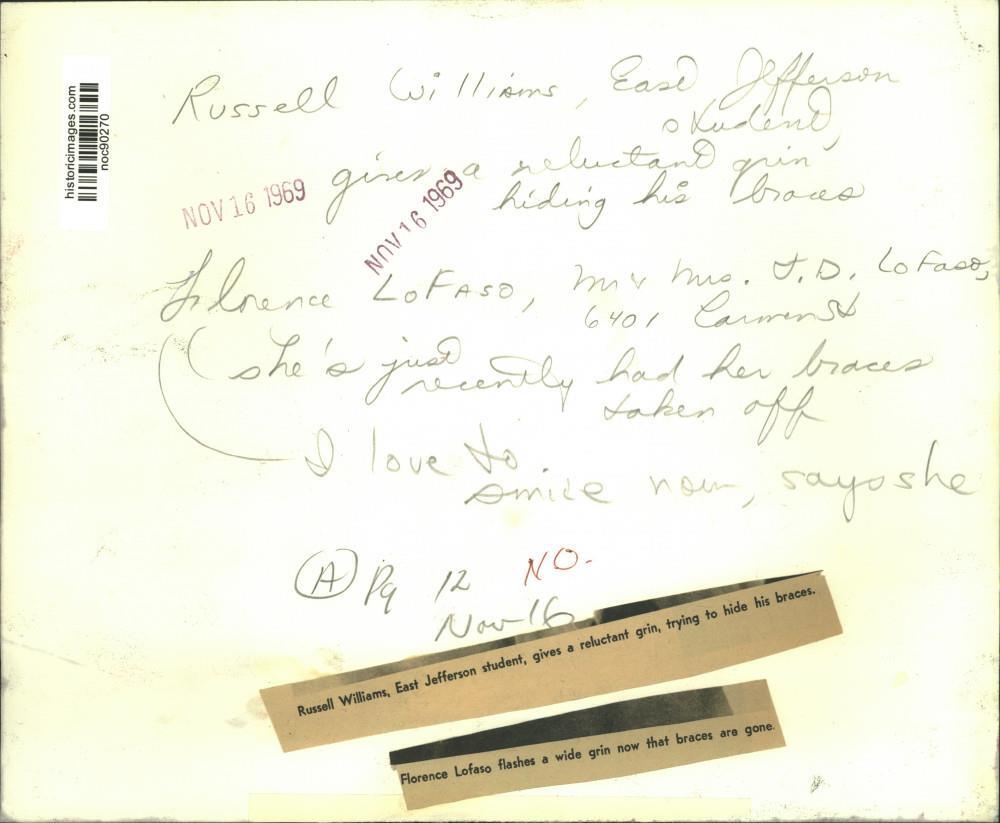 historicimages.com
noc90270
Russell Williams, East Jefferson
student,
gives a reluctant grin
hiding his braces
NOV 16 1969
NOV 16 1969
Florence LoFaso, Mr & Mrs. J.D. LoFaso,
6401 Carmen St
(she's just
recently had her braces
taken off
I love to
smile now, says she
A Pg 12 NO.
Nov 16
Russell Williams, East Jefferson student, gives a reluctant grin, trying to hide his braces.
Florence Lofaso flashes a wide grin now that braces are gone.